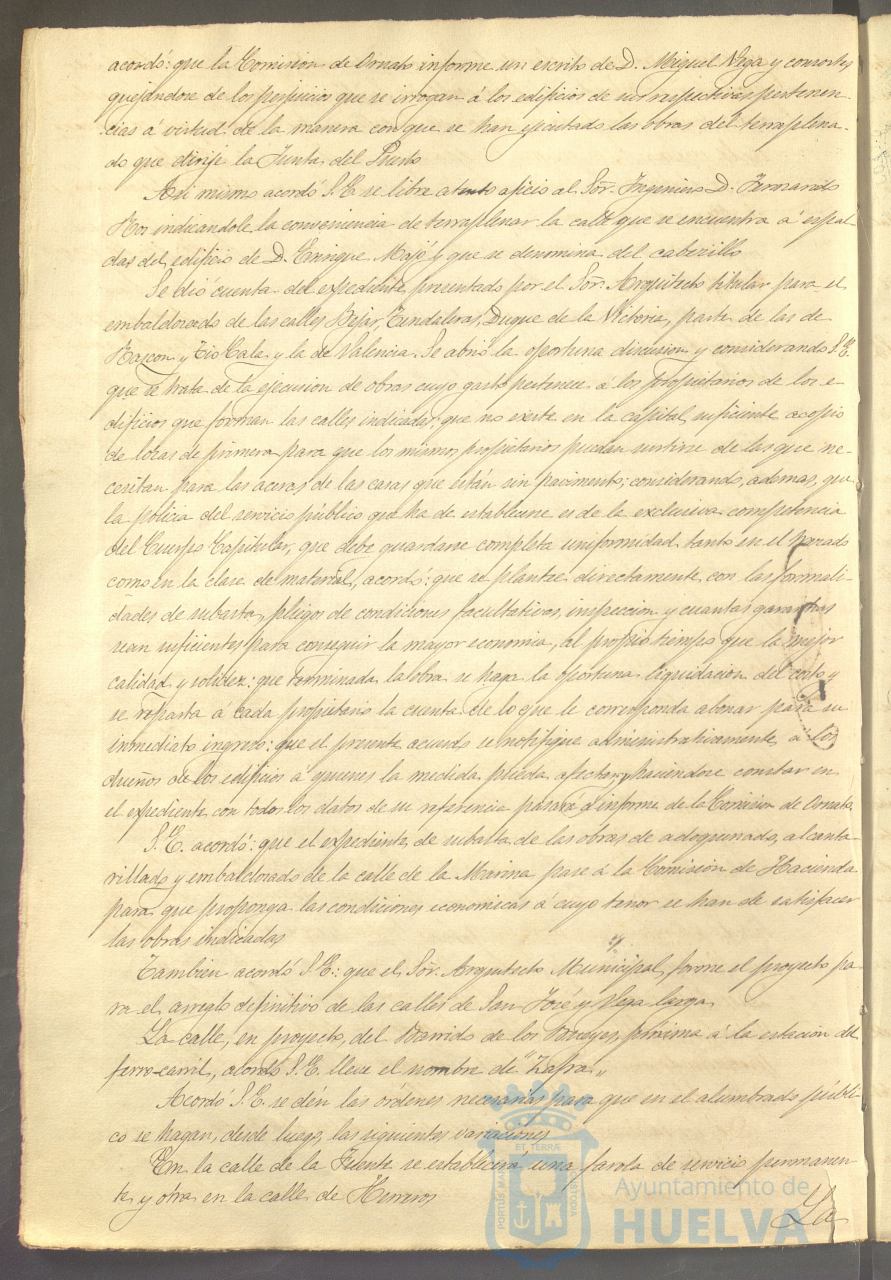 acordó: que la Comision de Ornato informe un escrito de D. Miguel Vega y consortes
quejándose de los perjuicios que se irrogan á los edificios de sus respectivas pertenen-
cias á virtud de la manera con que se han ejecutado las obras del terraplena-
do que dirije la Junta del Puerto
Asi mismo acordó S.E. se libre atento oficio al Sor. Ingeniero D. Fernando
Hoz indicandole la conveniencia de terraplenar la calle que se encuentra á espal-
das del edificio de D. Enrique Majó y que se denomina del cabezillo
Se dió cuenta del expediente presentado por el Sor. Arquitecto titular para el
embaldosado de las calles Bejar, Tendaleras, Duque de la Victoria, parte de las de
Rascon y Tio Cala y la de Valencia. Se abrió la oportuna discusion y considerando S.E.
que se trata de la ejecucion de obras cuyo gasto pertenece á los propietarios de los e-
dificios que forman las calles indicadas, que no existe en la capital suficiente acopio
de lozas de primera para que los mismos propietarios puedan surtirse de las que ne-
cesitan para las aceras de las casas que están sin pavimento; considerando, ademas, que
la policia del servicio público que ha de establecerse es de la exclusiva competencia
del Cuerpo Capitular, que debe guardarse completa uniformidad tanto en el trazado
como en la clase de material, acordó: que se plantée directamente con las formali-
dades de subasta, pliegos de condiciones facultativas, inspeccion y cuantas garantias
sean suficientes para conseguir la mayor economia, al propio tiempo que la mejor
calidad y solidez: que terminada la obra se haga la oportuna liquidacion del costo y
se reparta á cada propietario la cuenta de lo que le corresponda abonar para su
inmediato ingreso: que el presente acuerdo se notifique administrativamente á los
dueños de los edificios á quienes la medida pueda afectar, haciendose constar en
el expediente con todos los datos de su referencia pasará á informe de la Comision de Ornato.
S.E. acordó: que el expediente de subasta de las obras de adoquinado, alcanta-
rillado y embaldosado de la calle de la Marina pase á la Comision de Hacienda
para que proponga las condiciones economicas á cuyo tenor se han de satisfacer
las obras indicadas
Tambien acordó S.E.: que el Sor. Arquitecto Municipal, forme el proyecto pa-
ra el arreglo definitivo de las calles de San José y Vega larga.
La calle, en proyecto, del Barrido de los Bueyes, próxima á la estacion del
ferro-carril, acordó S.E. lleve el nombre de "Zafra"
Acordó S.E. se dén las órdenes necesarias para que en el alumbrado públi-
co se hagan, desde luego, las siguientes variaciones
En la calle de la Fuente se establecerá una farola de servicio permanen-
te y otra en la calle de Herreros
La
PORTUS MARIS ET TERRÆ CUSTODIA
Ayuntamiento de
HUELVA